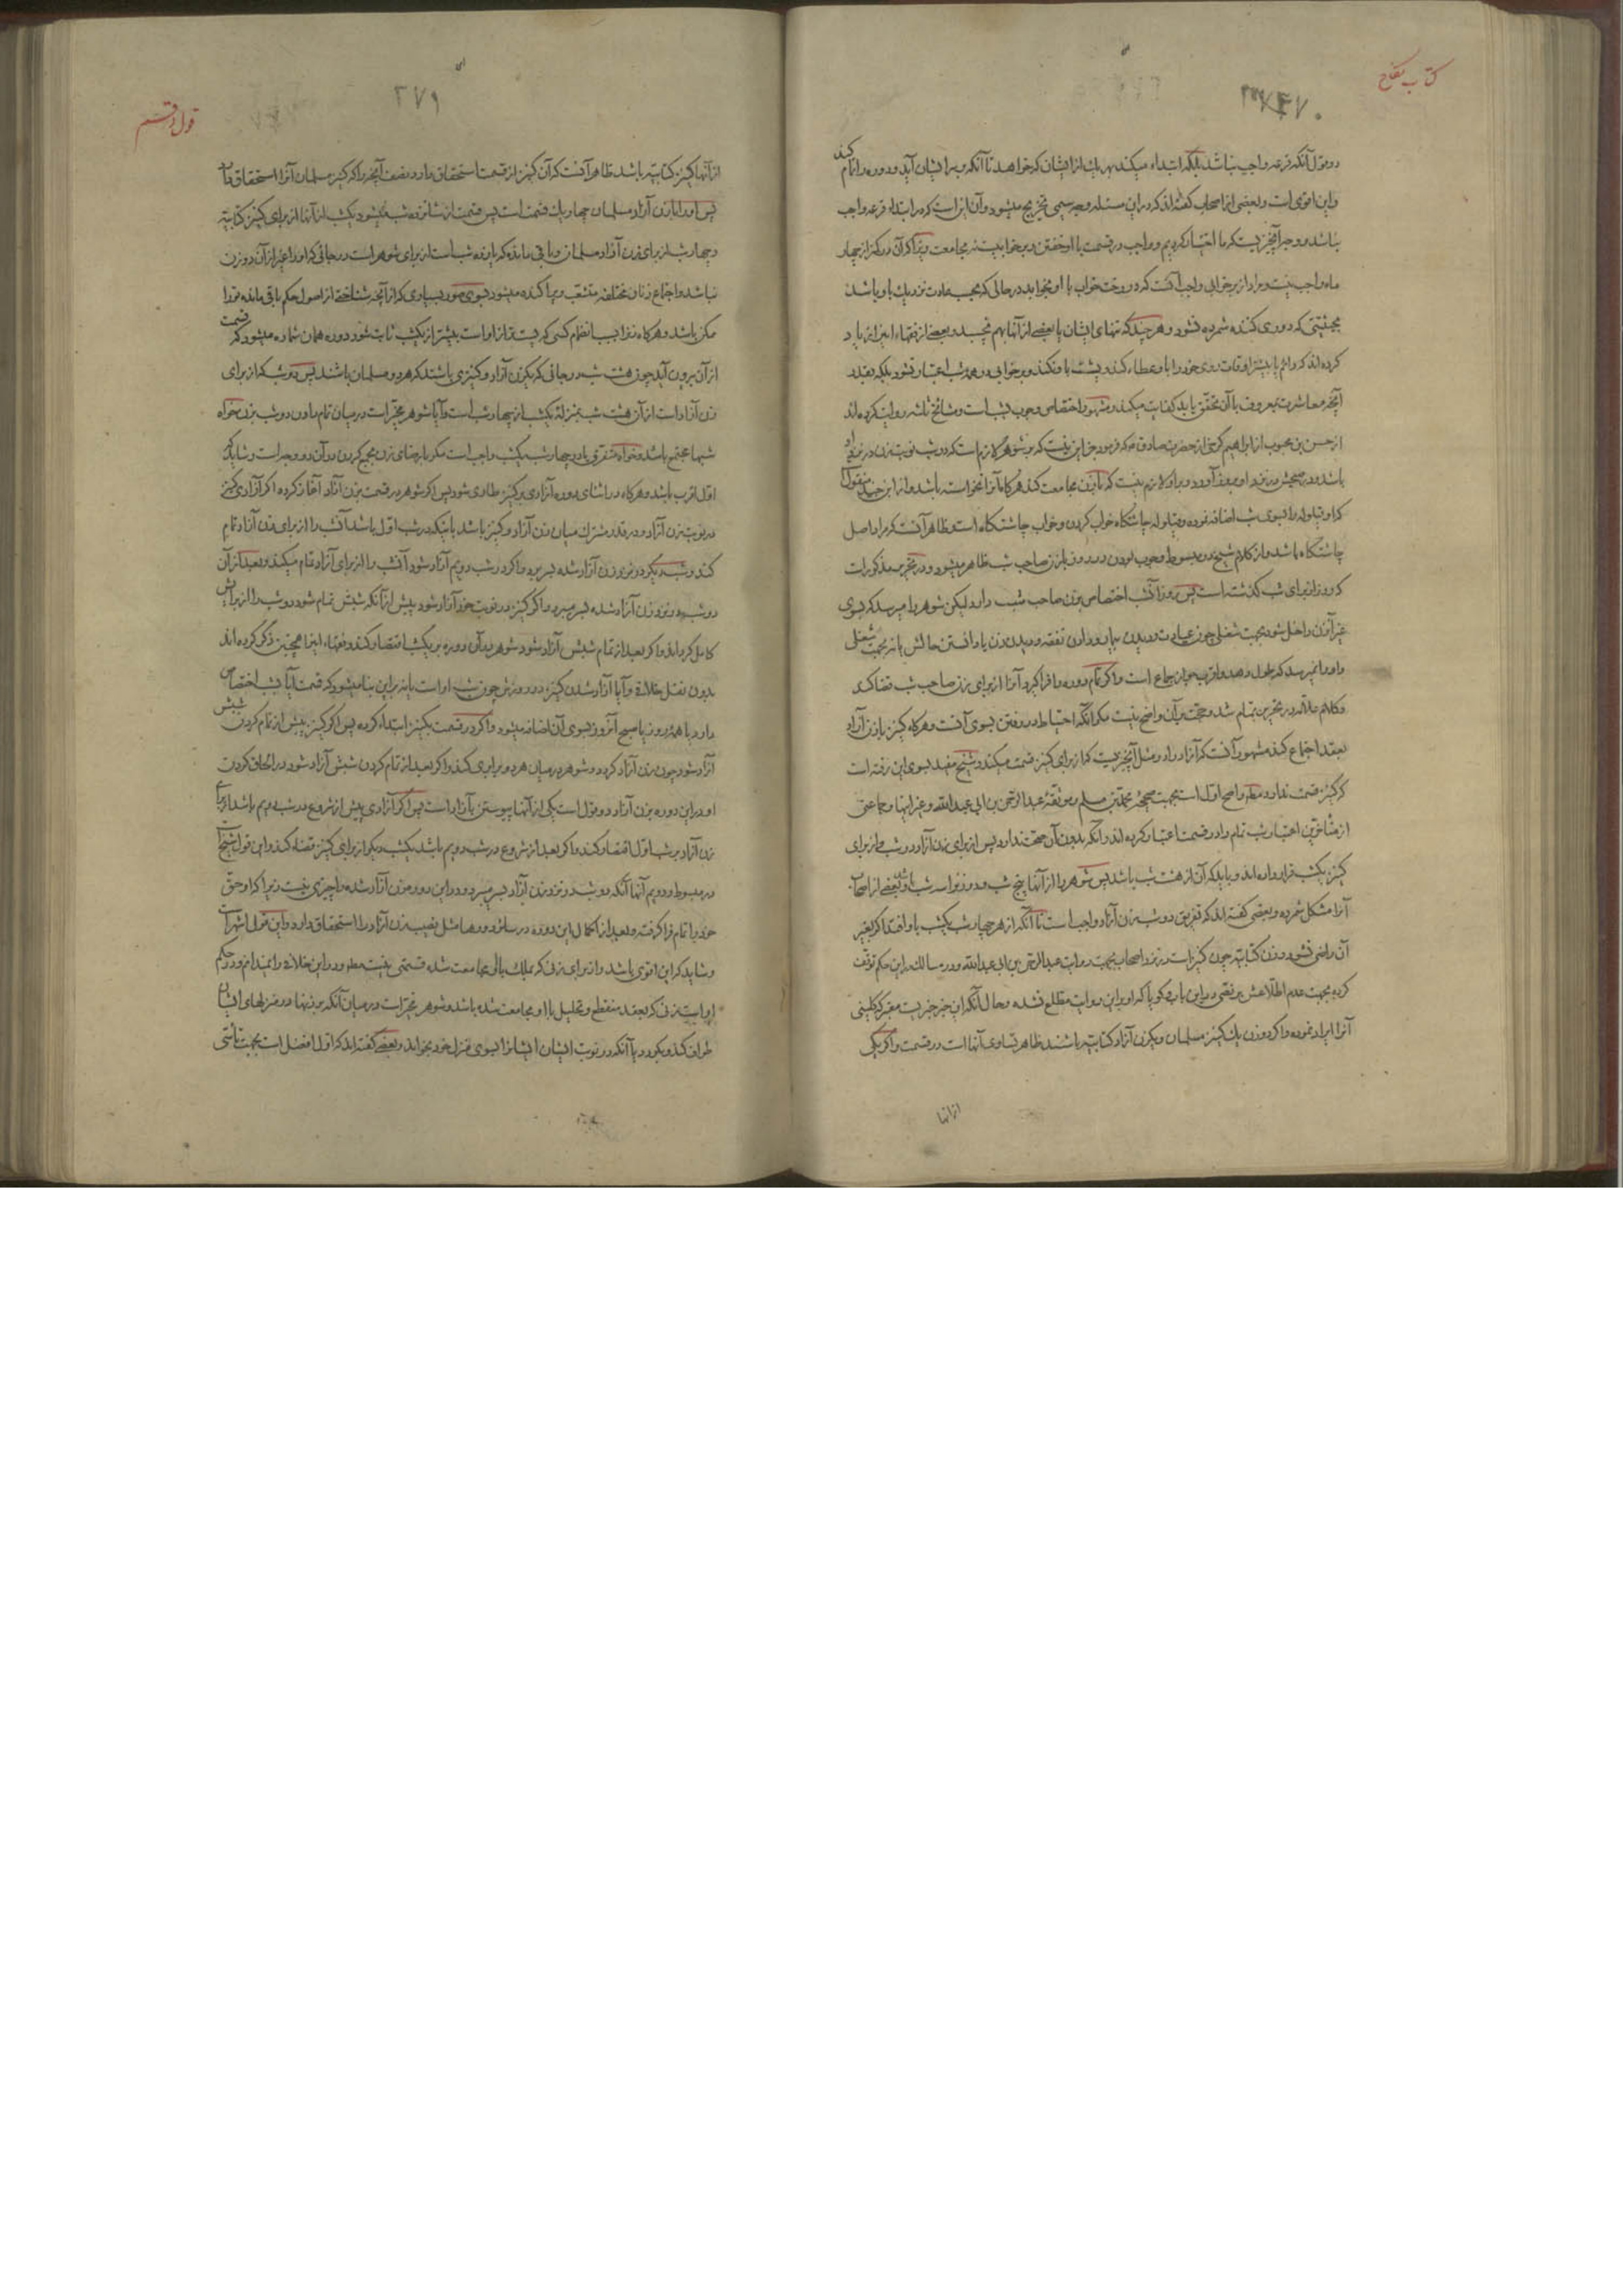 کتاب نکاح
۳۷۰
دو قول آنکه قرعه واجب نباشد بلکه ابتداء میکند بهر یك از ایشان که خواهد تا آنکه بر ایشان آید و دوره را تمام کند
و این اقوی است و بعضی از اصحاب گفته‌اند که در این مسئله وجه سیمی تخریج میشود و آن این است که در ابتداء قرعه واجب
نباشد و وجه آنچیزیست که ما اختیار کردیم و واجب در قسمت با او خفتن در برخوابیست نه مجامعت زیرا که آن در کمتر از چهار
ماه واجب نیست و مراد از برخوابی واجب آنست که در رخت خواب با او بخوابد در حالی که بحسب عادت نزدیك باو باشد
بحیثیتی که دوری کننده شمرده نشود و هر چند که تنهای ایشان یا بعضی از آنها بهم نچسبد و بعضی از فقهاء این را زیاد
کرده‌اند که دائم یا بیشتر اوقات روی خود را باو عطاء کند و پشت باو نکند و برخوابی در همه شب اعتبار نشود بلکه بقدر
آنچه معاشرت بمعروف با آن تحقق یابد کفایت میکند و مشهور اختصاص وجوب بشب است و مشایخ ثلثه روایت کرده‌اند
از حسن بن محبوب از ابراهیم کرخی از حضرت صادق ع که فرمود جز این نیست که بر شوهر لازم است که در شب نوبت زن در نزد او
باشد و در صبحش در نزد او بروز آورد و بر او لازم نیست که با زن مجامعت کند هرگاه آنرا نخواسته باشد و از ابن جنید منقول
که او قیلوله را بسوی شب اضافه نموده و قیلوله چاشتگاه خواب کردن و خواب چاشتگاه است و ظاهر آنست که مراد اصل
چاشتگاه باشد و از کلام شیخ در مبسوط وجوب بودن در روز با زن صاحب شب ظاهر میشود و در تحریر مذکور است
که روز از برای شب گذشته است پس روز آنشب اختصاص بزن صاحب شب دارد لیکن شوهر را میرسد که بسوی
غیر آنزن داخل شود بجهت شغلی چون عیادت و دیدن بیمار و دادن نفقه و دیدن زن یا دانستن حالش یا نه بجهت شغلی
و او را نمیرسد که طول دهد و اقرب جواز جماع است و اگر تمام دوره را فرا گیرد آنرا از برای زن صاحب شب قضا کند
و کلام علامه در تحریر تمام شد و حجت بر آن واضح نیست مگر آنکه احتیاط در رفتن بسوی آنست و هرگاه کنیز با زن آزاد
بعقد اجتماع کند مشهور آنست که آزاد را دو مثل آنچیزیست که از برای کنیز قسمت میکند و شیخ مفید بسوی این رفته است
که کنیز قسمت ندارد مط و اصح اول است بجهت صحیحهٔ محمد بن مسلم و موثقهٔ عبدالرحمن بن ابی عبدالله و غیر اینها و جماعتی
از متأخرین اعتبار شب تمام را در قسمت اعتبار کرده‌اند و آنکه بدون آن صحت ندارد پس از برای زن آزاد دو شب و از برای
کنیز یکشب قرار داده‌اند و باید که آن از هشت شب باشد پس شوهر را از آنها پنج شب و در نزد
آنرا مشکل شمرده و بعضی گفته‌اند که تفریق دو شب زن آزاد واجب است تا آنکه از هر چهار شب یکشب باو افتد اگر بغیر
آن راضی نشود و زن کتابیه چون کنیز است در نزد اصحاب بجهت روایت عبدالرحمن بن ابی عبدالله و در مسالك در این حکم توقف
کرده بجهت عدم اطلاعش بر نصی در این باب و گویا که او بر این روایت مطلع نشده و حال آنکه این خبر خبریست معتبر که کلینی
آنرا ایراد نموده و اگر دو زن یك کنیز مسلمان و یك زن آزاد کتابیه باشند ظاهر تساوی آنها است در قسمت و اگر یکی
از آنها
۳۷۱
قول در قسم
از آنها کنیز کتابیه باشد ظاهر آنست که آن کنیز از قسمت استحقاق دارد نصف آنچه را که کنیز مسلمان آنرا استحقاق دارد
پس او را با زن آزاد مسلمان چهار یك قسمت است پس قسمت از شانزده شب میشود یکشب از آنها از برای کنیز کتابیه
و چهار شب از برای زن آزاد مسلمان و باقی مانده که یازده شب است از برای شوهر است در جائی که او را غیر از آن دو زن
نباشد و اجتماع زنان مختلفه متشعب و پراکنده میشود بسوی صور بسیاری که از آنچه شناختی از اصول حکم باقی مانده تو را
ممکن باشد و هرگاه تو را بسبب انضمام کسی که پست‌تر از او است بیشتر از یکشب ثابت شود دوره همان شماره میشود که قسمت
از آن بیرون آید چون هشت شب در جائی که یك زن آزاد و کنیزی باشند که هر دو مسلمان باشند پس دو شب که از برای
زن آزاد است از آن هشت شب بمنزلهٔ یکشب از چهار شب است و آیا شوهر مخیر است در میان تمام دادن دو شب بزن خواه
شبها مجتمع باشد و خواه متفرق یا در چهار شب یکشب واجب است مگر با رضای زن بجمع کردن در آن دو وجه است و شاید که
اول اقرب باشد و هرگاه در اثنای دوره آزادی بر کنیز طاری شود پس اگر شوهر در قسمت بزن آزاد آغاز کرده اگر آزادی کنیز
در نوبت زن آزاد و در قدر مشترك میان زن آزاد و کنیز باشد باینکه در شب اول باشد آنشب را از برای زن آزاد تمام
کند و شب دیگر در نزد زن آزاد شده بسر برد و اگر در شب دویم آزاد شود آنشب را از برای آزاد تمام میکند و بعد از آن
دو شب در نزد زن آزاد شده بسر میبرد و اگر کنیز در نوبت خود آزاد شود پیش از آنکه شبش تمام شود دو شب را از برایش
کامل گرداند و اگر بعد از تمام شبش آزاد شود شوهر در آن دوره بر یکشب اقتصار کند و فقهاء اینرا همچنین ذکر کرده‌اند
بدون نقل خلافی و آیا آزاد شدن کنیز در روزش چون شب او است یا نه بر این بنا میشود که قسمت آیا بشب اختصاص
دارد یا همهٔ روز یا صبح آنروز بسوی آن اضافه میشود و اگر در قسمت بکنیز ابتداء کرده پس اگر کنیز پیش از تمام کردن شبش
آزاد شود چون زن آزاد گردد و شوهر در میان هر دو برابری کند و اگر بعد از تمام کردن شبش آزاد شود در الحاق کردن
او در این دوره بزن آزاد دو قول است یکی از آنها پیوستن بآزاد است پس اگر آزادی پیش از شروع در شب دویم باشد از برای
زن آزاد بر شب اول اقتصار کند و اگر بعد از شروع در شب دویم باشد یکشب دیگر از برای کنیز قضاء کند و این قول شیخ است
در مبسوط و دویم آنها آنکه دو شب در نزد زن آزاد بسر میبرد و در این دوره زن آزاد شده را چیزی نیست زیرا که او حق
خود را تمام فرا گرفته و بعد از اکمال این دوره در سائر دورها مثل نصیب زن آزاد را استحقاق دارد و این قول اشهر است
و شاید که این اقوی باشد و از برای زنی که بملك یا آن مجامعت شده قسمتی نیست مط و در این خلافی را نمیدانم و در حکم
او است زنی که بعقد منقطع و تحلیل با او مجامعت شده باشد و شوهر مخیر است در میان آنکه بر زنها در منزلهای ایشان
طواف کند و بگردد یا آنکه در نوبت ایشان ایشانرا بسوی منزل خود بخواند و بعضی گفته‌اند که اول افضل است بجهت تأسی